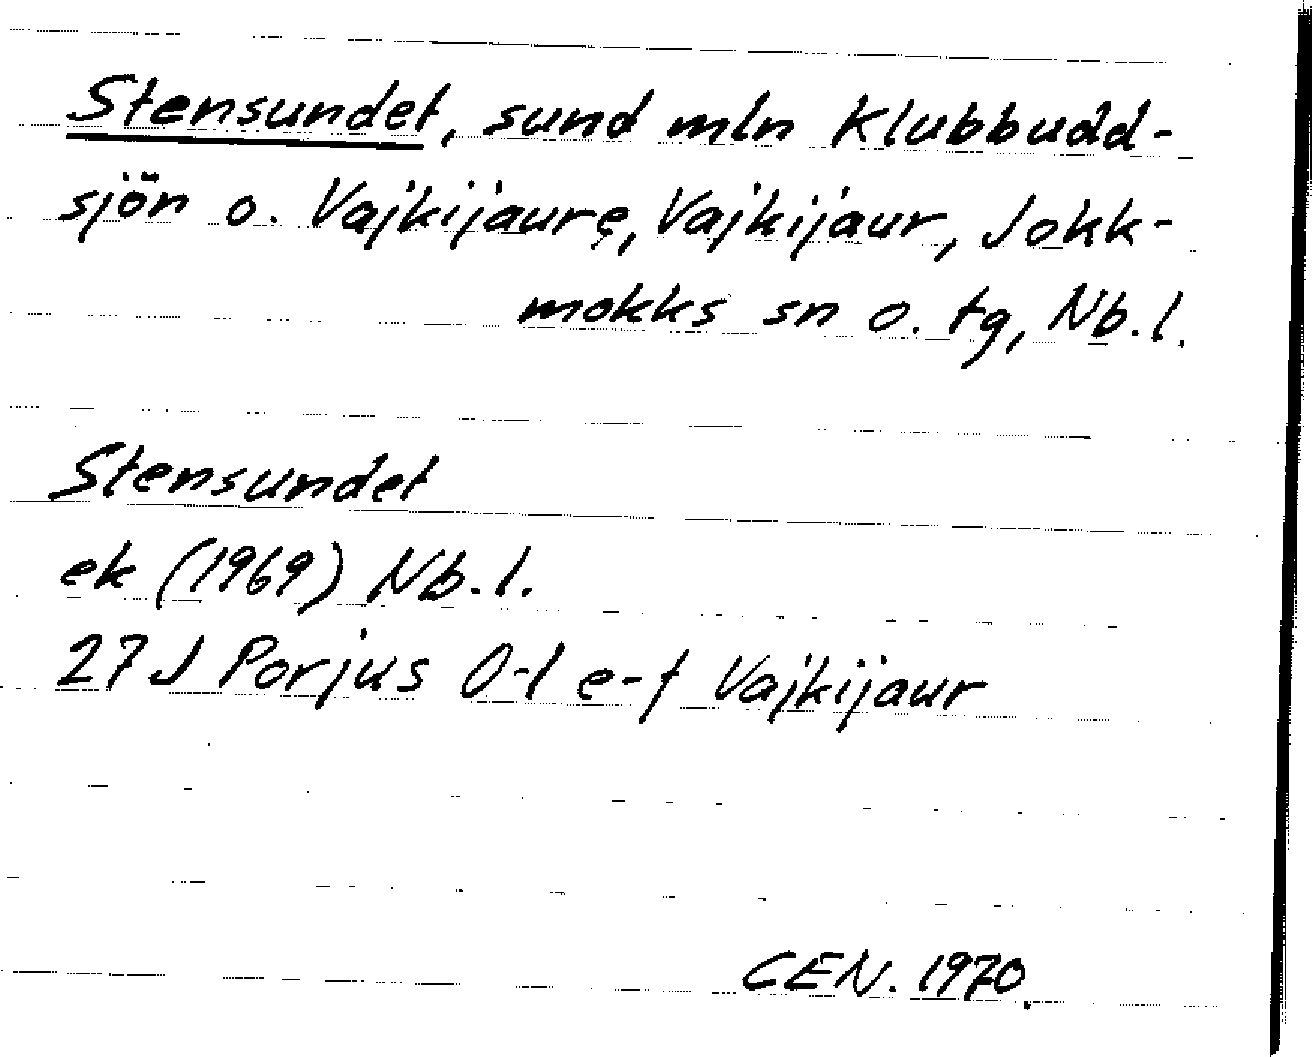 Stensundet, sund mln Klubbudd-
sjön o. Vajkijaure, Vajkijaur, Jokk-
mokks sn o. tg, Nb.l.
Stensundet
ek (1969) Nb.l.
27J Porjus 0-1 e-f Vajkijaur
CEN. 1970.